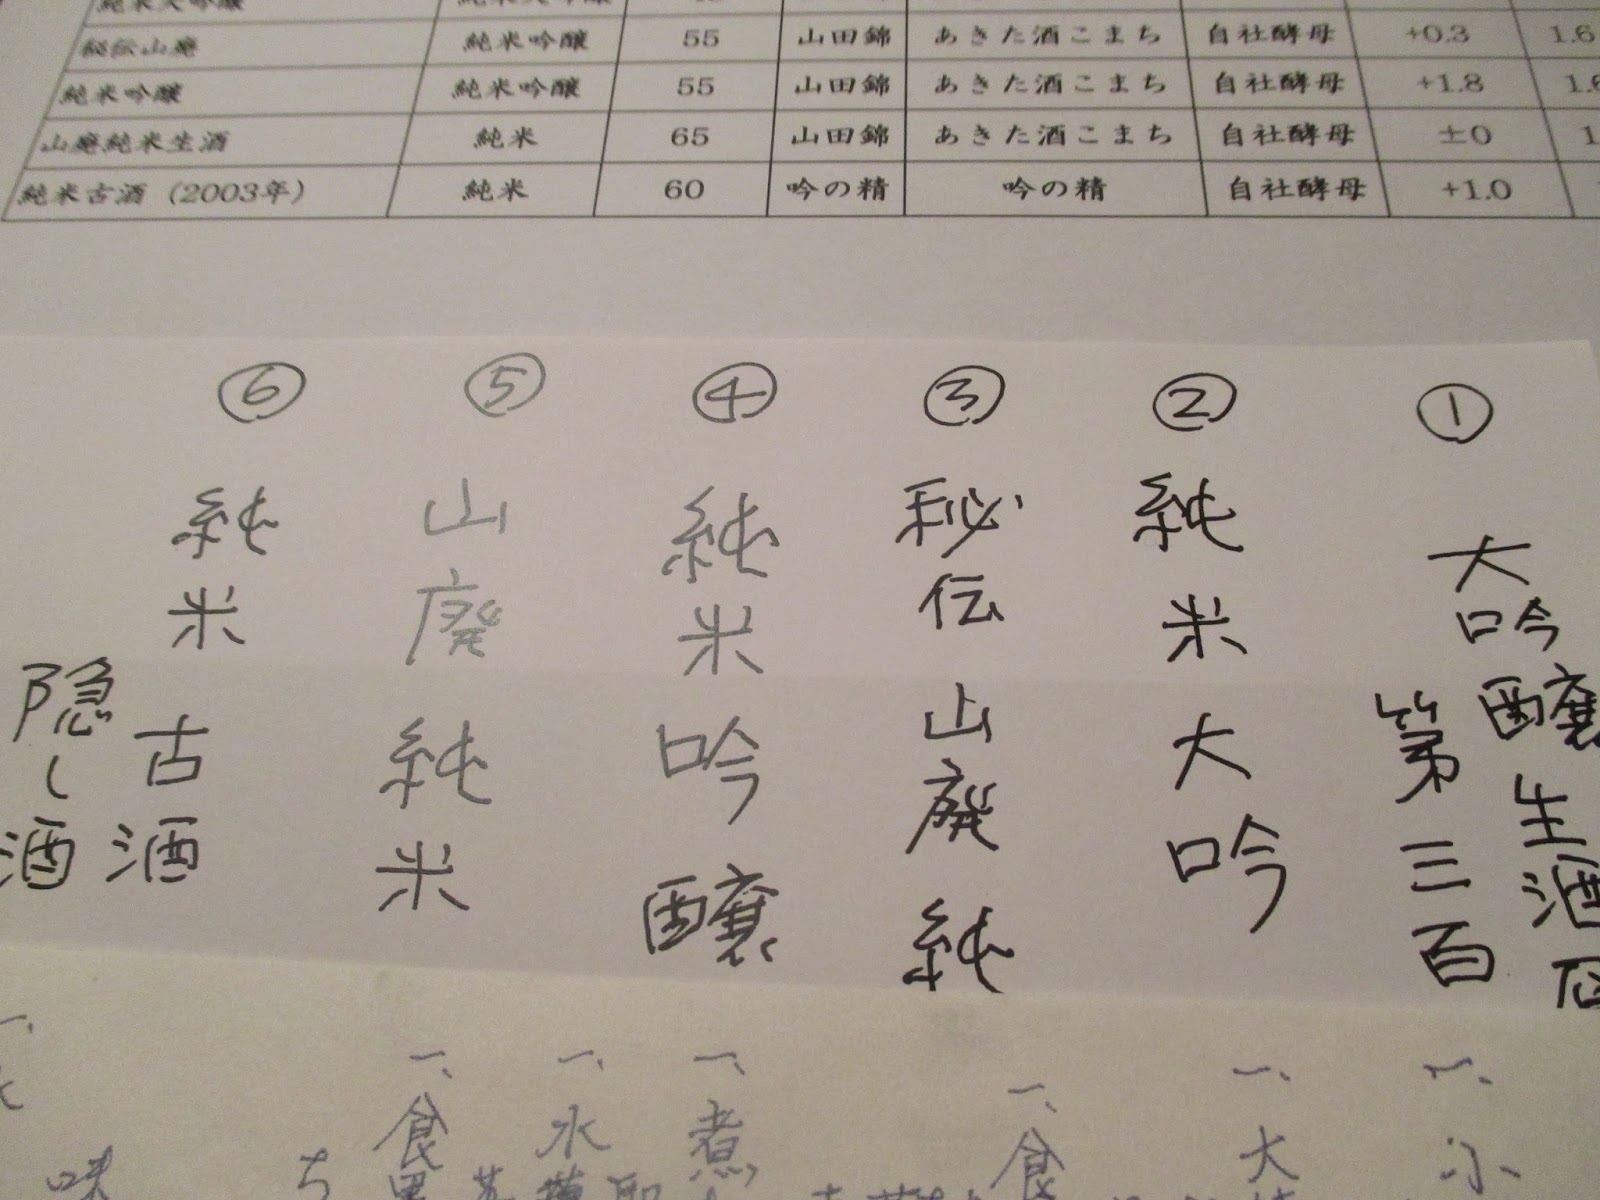 純米大吟醸 純米大吟醸
秘伝山廃 純米吟醸 55 山田錦 あきた酒こまち 自社酵母 +0.3 1.6
純米吟醸 純米吟醸 55 山田錦 あきた酒こまち 自社酵母 +1.8
山廃純米生酒 純米 65 山田錦 あきた酒こまち 自社酵母 ±0
純米古酒（2003年） 純米 60 吟の精 吟の精 自社酵母 +1.0
①
大吟醸生酒
第三百
②
純米大吟
③
秘伝山廃純
④
純米吟醸
⑤
山廃純米
⑥
純米古酒
隠し酒
一、小
一、大
一、食
一、煮
一、水
一、食
ち
味